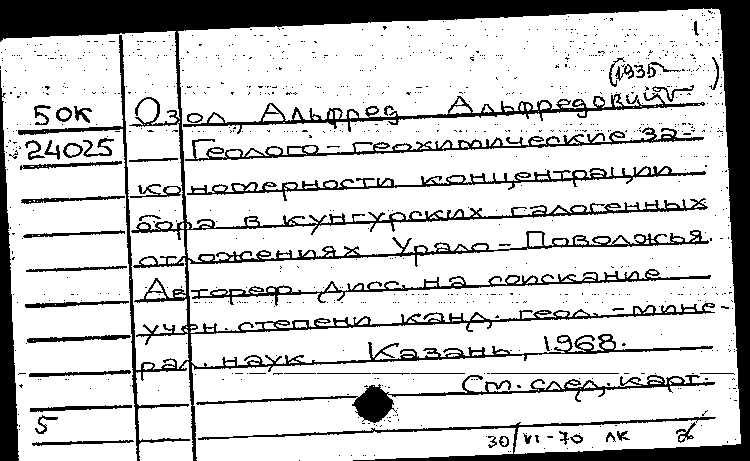 1
(1935- )
50К Озол, Альфред Альфредович
24025 Геолого-геохимические за-
кономерности концентрации
бора в кунгурских галогенных
отложениях Урало-Поволжья.
Автореф. дисс. на соискание
учен. степени канд. геол.-мине-
рал. наук. Казань, 1968.
См. след. карт.
5
30/VI-70 ЛК